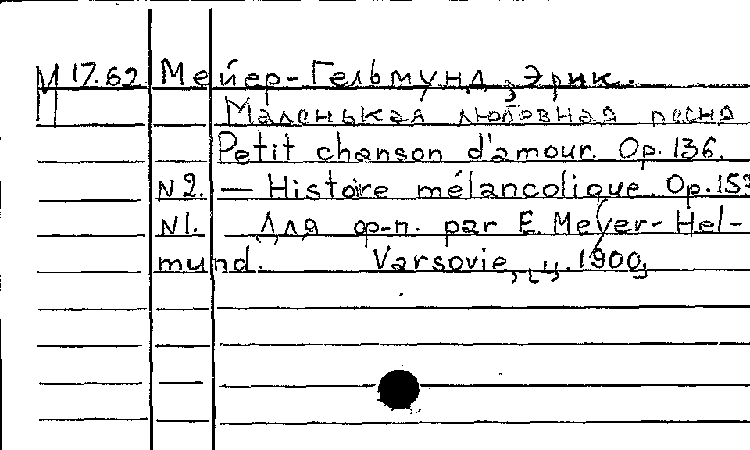 М 17.62 Мейер-Гельмунд, Эрик.
Маленькая любовная песня
Petit chanson d'amour. Op. 136.
N 2. — Histoire mélancolique. Op. 153
N 1. Для ф-п. par E. Meyer-Hel-
mund. Varsovie, ц. 1900,